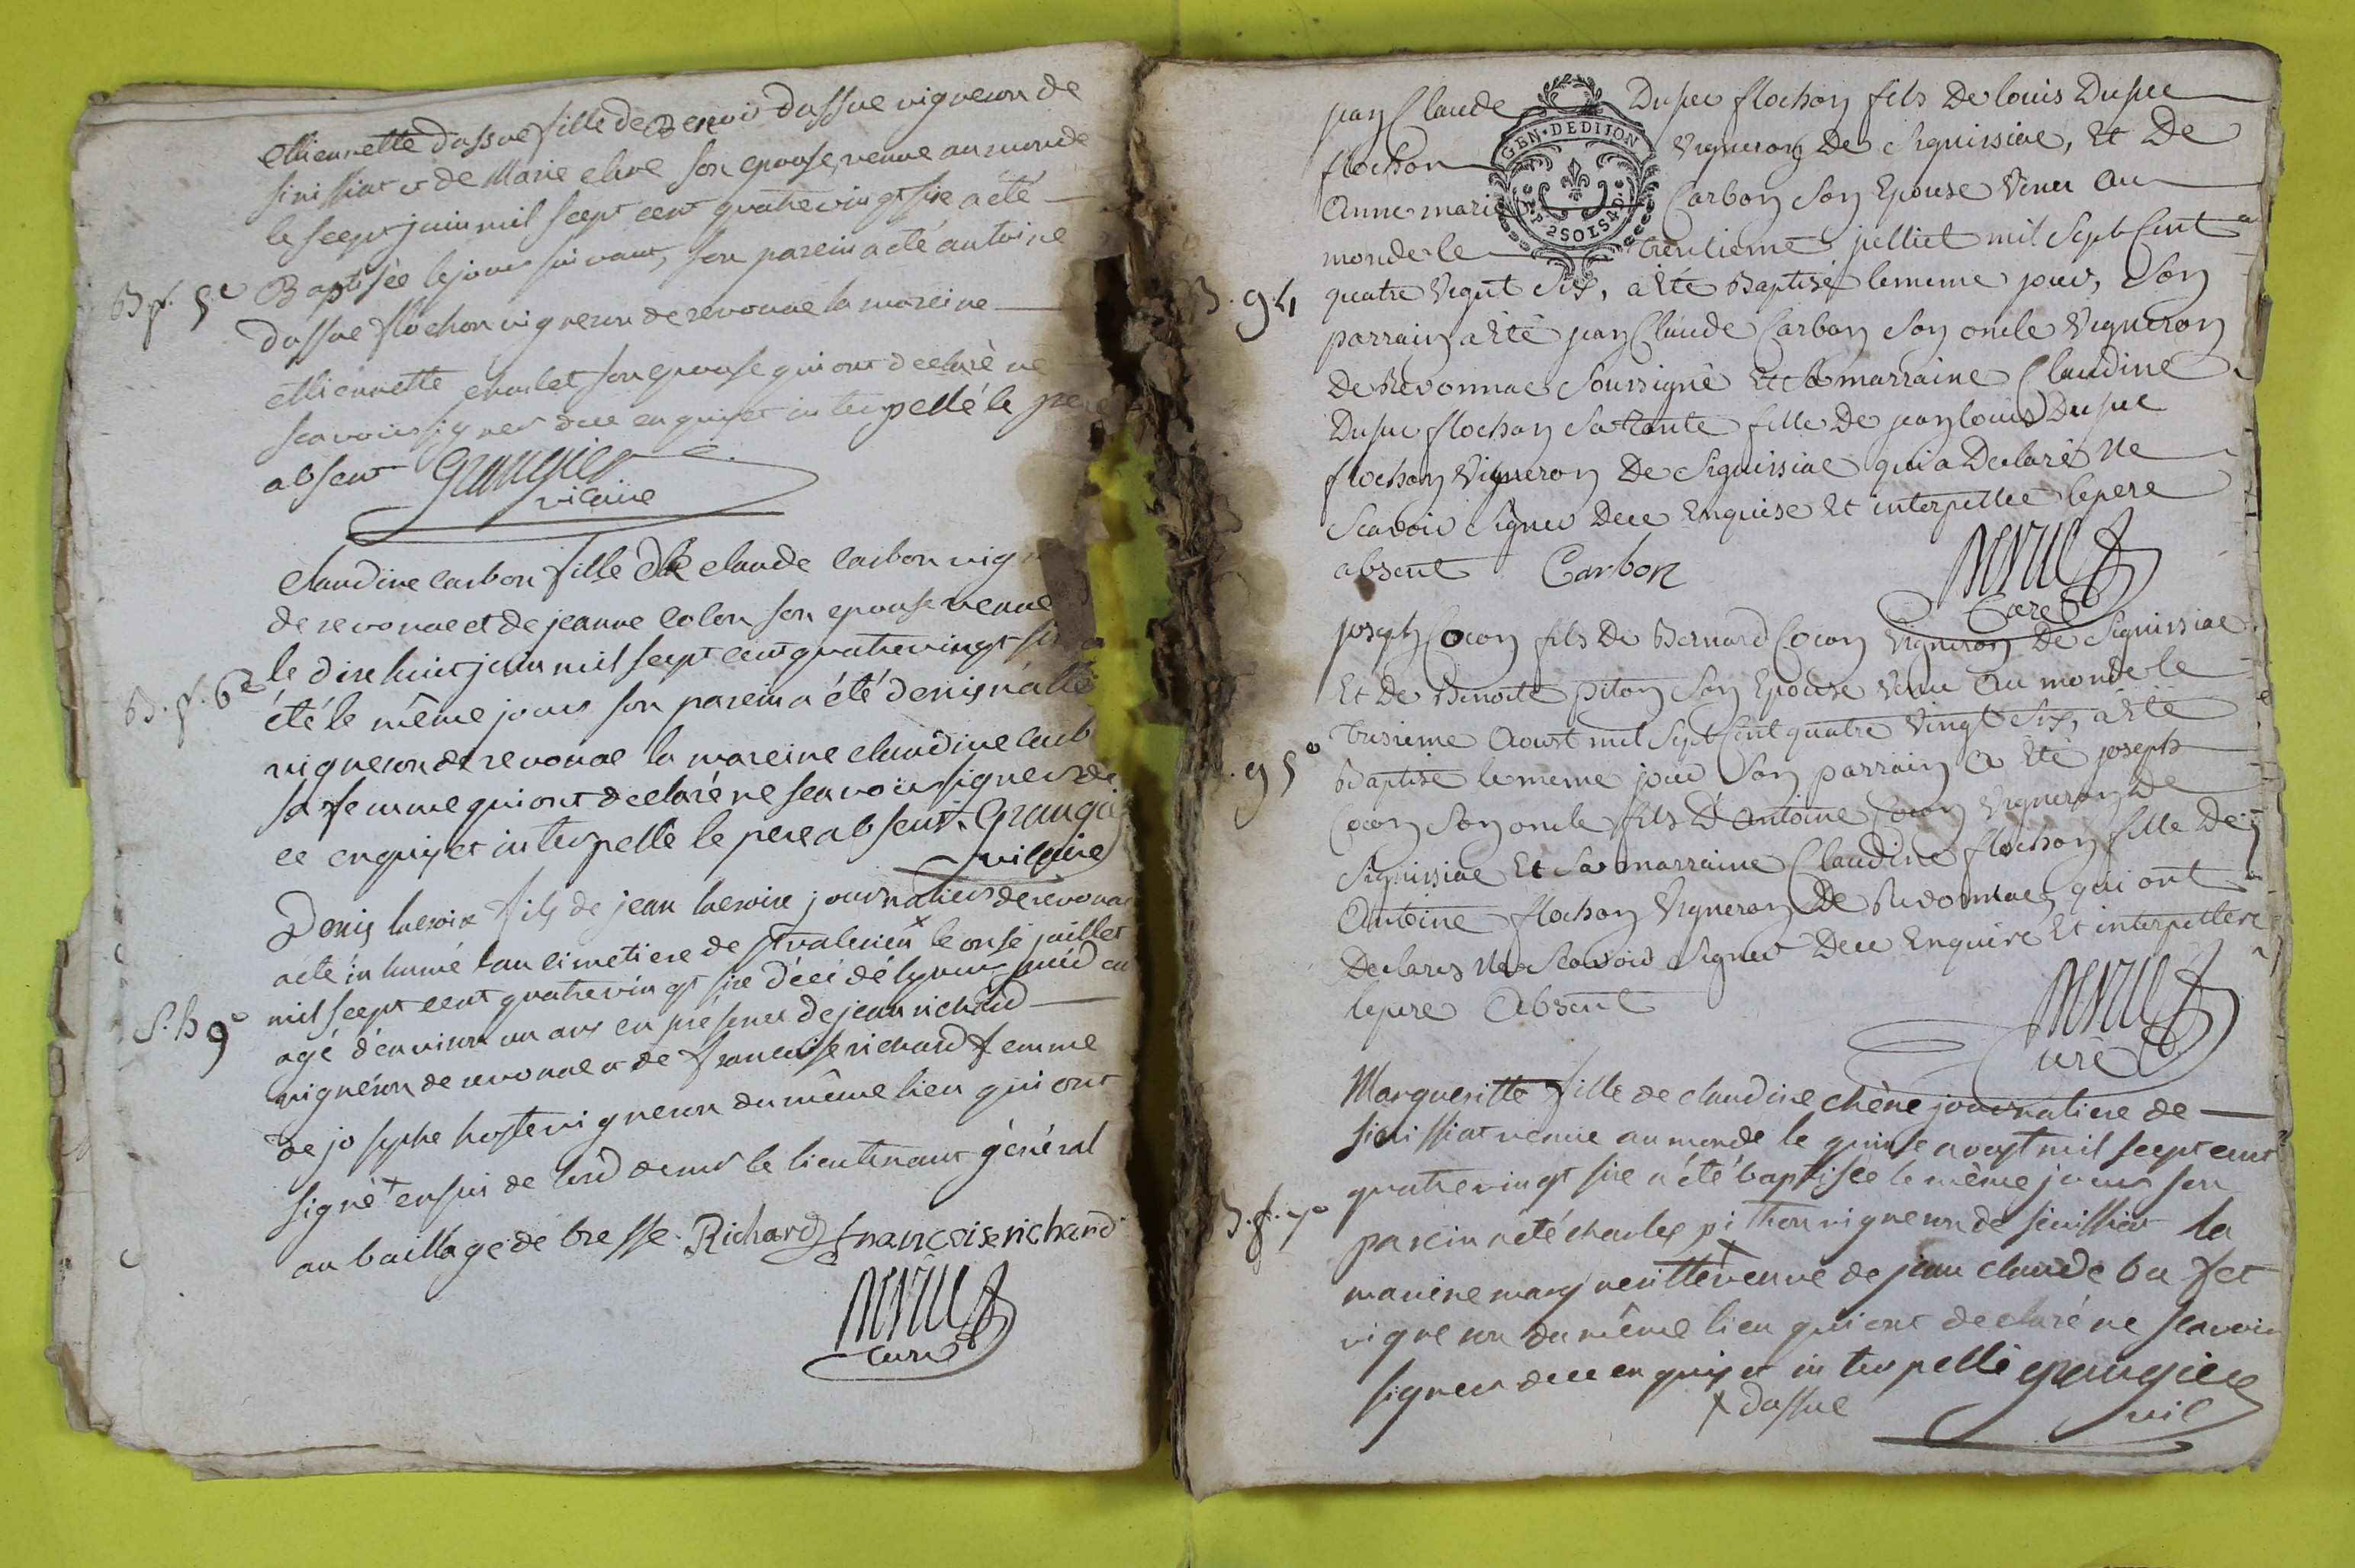 Etiennette dassue fille de Benoit dassue vigneron de
sinissiat et de Marie cluve son epouse, venue au monde
le sept juin mil sept cent quatrevingt sixe a été
B. f. 5e
Baptisèe le jour suivant, son parein a été antoine
dassue flochon vigneron de revonae la mareine
Etiennette son epouse qui ont declarè ne
scavoir signer dece enquis et interpellé le pere
absent Grangier
vicaire
claudine carbon fille de claude carbon vig
de revonae et de jeanne colon son epouse venue
le dixe huit juin mil sept cent quatrevingt six
B. f. 6e
été le même jour son parein a été denis
vigneron de revonae la mareine claudine carb
sa femme qui ont declaré ne scavoir signer de
ce enquis et interpellé le pere absent. Grangie
vicaire
Denis lacroix fils de jean lacroix journalier de revonae
a été inhumé au cimetiere de st valerien le onse juillet
mil sept cent quatrevingt sixe décédé
S. h 9e
agé d'environ un ans en présence de jean richard
vigneron de revonae et de francoise richard femme
de josephe hoste vigneron du même lieu qui ont
signé ensuis de l'ord de mr le lieutenant général
au baillage de bresse. Richard francoise richard
curé
jean Claude Dupuc flochon fils De louis Dupuc
flochon Vigneron De Signissiae, Et De
GEN. DEDIJON
2SOLS4D.
Anne marie Carbon Son Epouse Venu Au
monde le trentieme jelliet mil Sept Cent
B. g 4
quatre Vignt Six, a Eté Baptisé lememe jour, Son
parrain a Eté jean Claude Carbon Son oncle Vigneron
De Revonnae Soussigné Et la marraine Claudine
Dupuc flochon Sa tante fille De jean louis Dupuc
flochon Vigneron De Signissiae qui a Declaré Ne
Scavoir Signer Dece Enquise Et interpellée lepere
absent Carbon
Curé
joseph Cocon fils De Bernard Cocon Vigneron De Signissiae
Et De Benoite piton Son Epouse Venu Au monde le
troisieme Aoust mil Sept Cent quatre Vingt Six, a Eté
g 5e
Baptisé lememe jour Son parrain a Eté joseph
Cocon Son oncle fils D'Antoine Cocon Vigneron De
Signissiae Et Sa marraine Claudine flochon fille De
Antoine flochon Vigneron De Revonnae, qui ont
Declarés Ne Scavoir Signer Dece Enquire Et interpellere
lepere Absent
curé
Margueritte fille de claudine chêne journaliere de
sinissiat venue au monde le quinse aoust mil sept cent
quatrevingt sixe a été baptisée le même jour son
B. f. 7e
parein a été charles pithon vigneron de sinissiat la
mareine margueritte x veuve de jean claude bufet
vigneron du même lieu qui ont declaré ne scavoir
signer dece enquis et interpellé grangier
x dassue vic